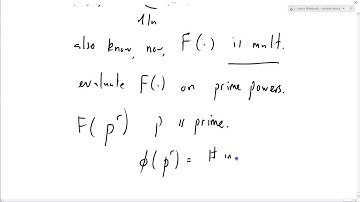 also know, now, F(·) is mult.
evaluate F(·) on prime powers.
F(p^r) p is prime.
ϕ(p^r) = # in